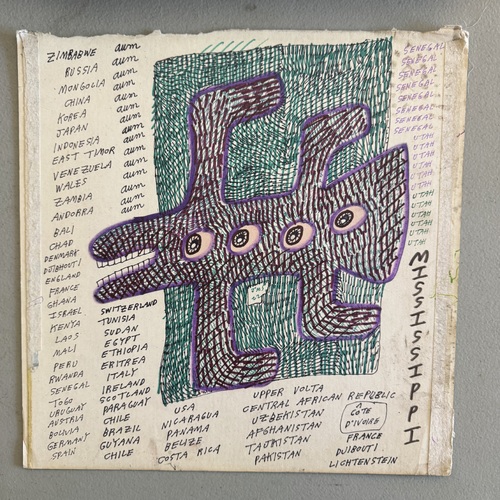 ZIMBABWE aum
RUSSIA aum
MONGOLIA aum
CHINA aum
KOREA aum
JAPAN aum
INDONESIA aum
EAST TIMOR aum
VENEZUELA aum
WALES aum
ZAMBIA aum
ANDORRA aum
BALI
CHAD
DENMARK
DJIBHOUTI
ENGLAND
FRANCE
GHANA
ISRAEL
KENYA
LAOS
MALI
PERU
RWANDA
SENEGAL
TOGO
URUGUAY
AUSTRIA
BOLIVIA
GERMANY
SPAIN
SWITZERLAND
TUNISIA
SUDAN
EGYPT
ETHIOPIA
ERITREA
ITALY
IRELAND
SCOTLAND
PARAGUAY
CHILE
BRAZIL
GUYANA
CHILE
USA
NICARAGUA
PANAMA
BELIZE
COSTA RICA
UPPER VOLTA
CENTRAL AFRICAN REPUBLIC
UZBEKISTAN
AFGHANISTAN
TAJIKISTAN
PAKISTAN
COTE
D'IVOIRE
FRANCE
DJIBOUTI
LICHTENSTEIN
SENEGAL
SENEGAL
SENEGAL
SENEGAL
SENEGAL
SENEGAL
SENEGAL
SENEGAL
UTAH
UTAH
UTAH
UTAH
UTAH
UTAH
UTAH
UTAH
UTAH
UTAH
MISSISSIPPI